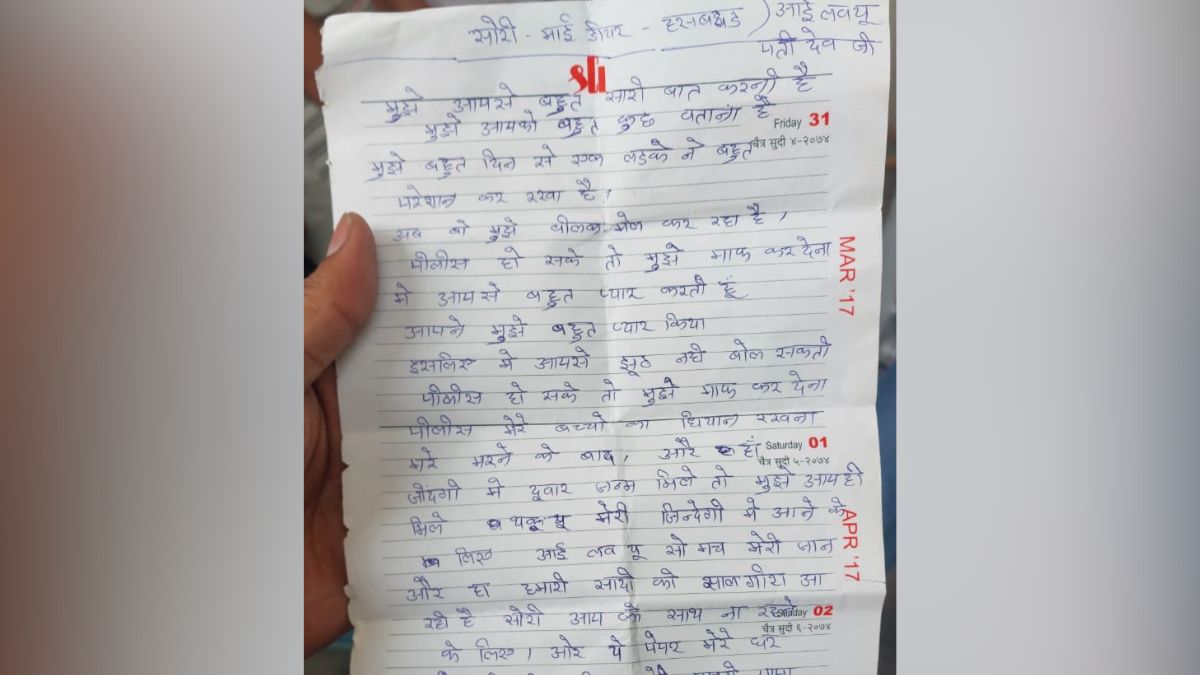 सोरी - माई डीयर - हसबेण्ड ) आई लव यू
पती देव जी
sti
मुझे आपसे बहुत सारी बात करनी है
मुझे आपको बहुत कुछ बताना है
Friday 31
चैत्र सुदी ४-२०७४
मुझे बहुत दिन से एक लडके ने बहुत
परेशान कर रखा है,
अब वो मुझे बीलक मेल कर रहा है,
पीलीस हो सके तो मुझे माफ कर देना
MAR '17
मे आपसे बहुत प्यार करती हूँ
आपने मुझे बहुत प्यार किया
इसलिए मे आपसे झूठ नही बोल सकती
पीलीस हो सके तो मुझे माफ कर देना
पीलीस मेरे बच्चो का धियान रखना
मेरे मरने के बाद, और हाँ
Saturday 01
चैत्र सुदी ५-२०७४
जीदंगी मे दूवार जन्म मिले तो मुझे आप ही
मिले थेंकू यू मेरी जिन्देगी मे आने के
APR '17
लिए आई लव यू सो मच मेरी जान
और हा हमारी सादी की सालगीरा आ
रही है सोरी आप के साथ ना रहने
Sunday 02
चैत्र सुदी ६-२०७४
के लिए, ओर ये पेपर मेरे घर